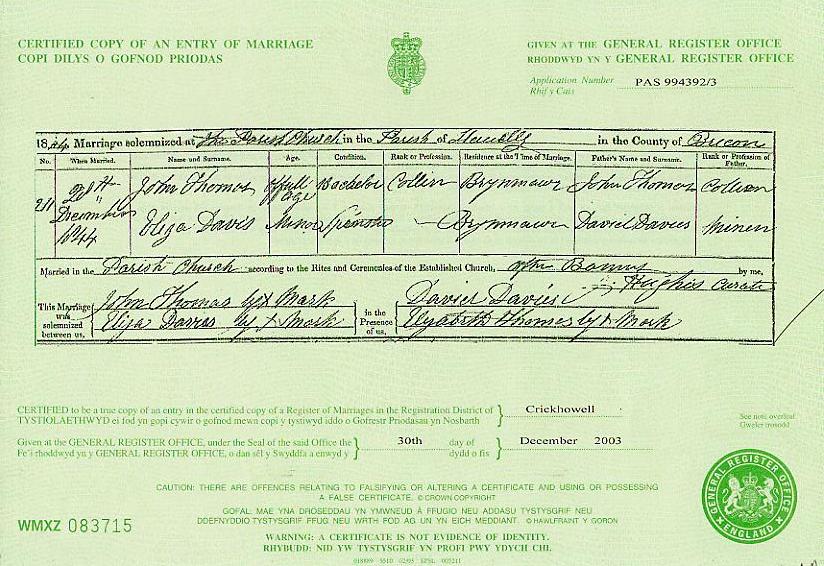 CERTIFIED COPY OF AN ENTRY OF MARRIAGE
COPI DILYS O GOFNOD PRIODAS
GIVEN AT THE GENERAL REGISTER OFFICE
RHODDWYD YN Y GENERAL REGISTER OFFICE
Application Number PAS 994392/3
Rhif y Cais
1844 Marriage solemnized at the Parish Church in the Parish of Llanelly in the County of Brecon
No. When Married. Name and Surname. Age. Condition. Rank or Profession. Residence at the Time of Marriage. Father's Name and Surname. Rank or Profession of Father.
211 December 1844
John Thomas of full age Bachelor Collier Brynmawr John Thomas Collier
Eliza Davis Minor Spinster — Brynmawr David Davies Miner
Married in the Parish Church according to the Rites and Ceremonies of the Established Church, after Banns by me,
Hughes Curate
This Marriage was solemnized between us,
John Thomas by X Mark
Eliza Davies by X Mark
in the Presence of us,
David Davies
Elizabeth Thomas by X Mark
CERTIFIED to be a true copy of an entry in the certified copy of a Register of Marriages in the Registration District of Crickhowell
TYSTIOLAETHWYD ei fod yn gopi cywir o gofnod mewn copi y tystiwyd iddo o Gofrestr Priodasau yn Nosbarth
See note overleaf
Gweler trosodd
Given at the GENERAL REGISTER OFFICE, under the Seal of the said Office the 30th day of December 2003
Fe'i rhoddwyd yn y GENERAL REGISTER OFFICE, o dan sêl y Swyddfa a enwyd y dydd o fis
CAUTION: THERE ARE OFFENCES RELATING TO FALSIFYING OR ALTERING A CERTIFICATE AND USING OR POSSESSING
A FALSE CERTIFICATE. © CROWN COPYRIGHT
GOFAL: MAE YNA DROSEDDAU YN YMWNEUD Â FFUGIO NEU ADDASU TYSTYSGRIF NEU
DDEFNYDDIO TYSTYSGRIF FFUG NEU WRTH FOD AG UN YN EICH MEDDIANT. © HAWLFRAINT Y GORON
WARNING: A CERTIFICATE IS NOT EVIDENCE OF IDENTITY.
RHYBUDD: NID YW TYSTYSGRIF YN PROFI PWY YDYCH CHI.
WMXZ 083715
GENERAL REGISTER OFFICE
ENGLAND